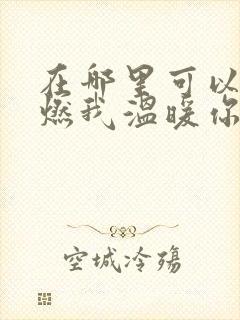 在哪里可以
燃我温暖你
空城冷殇